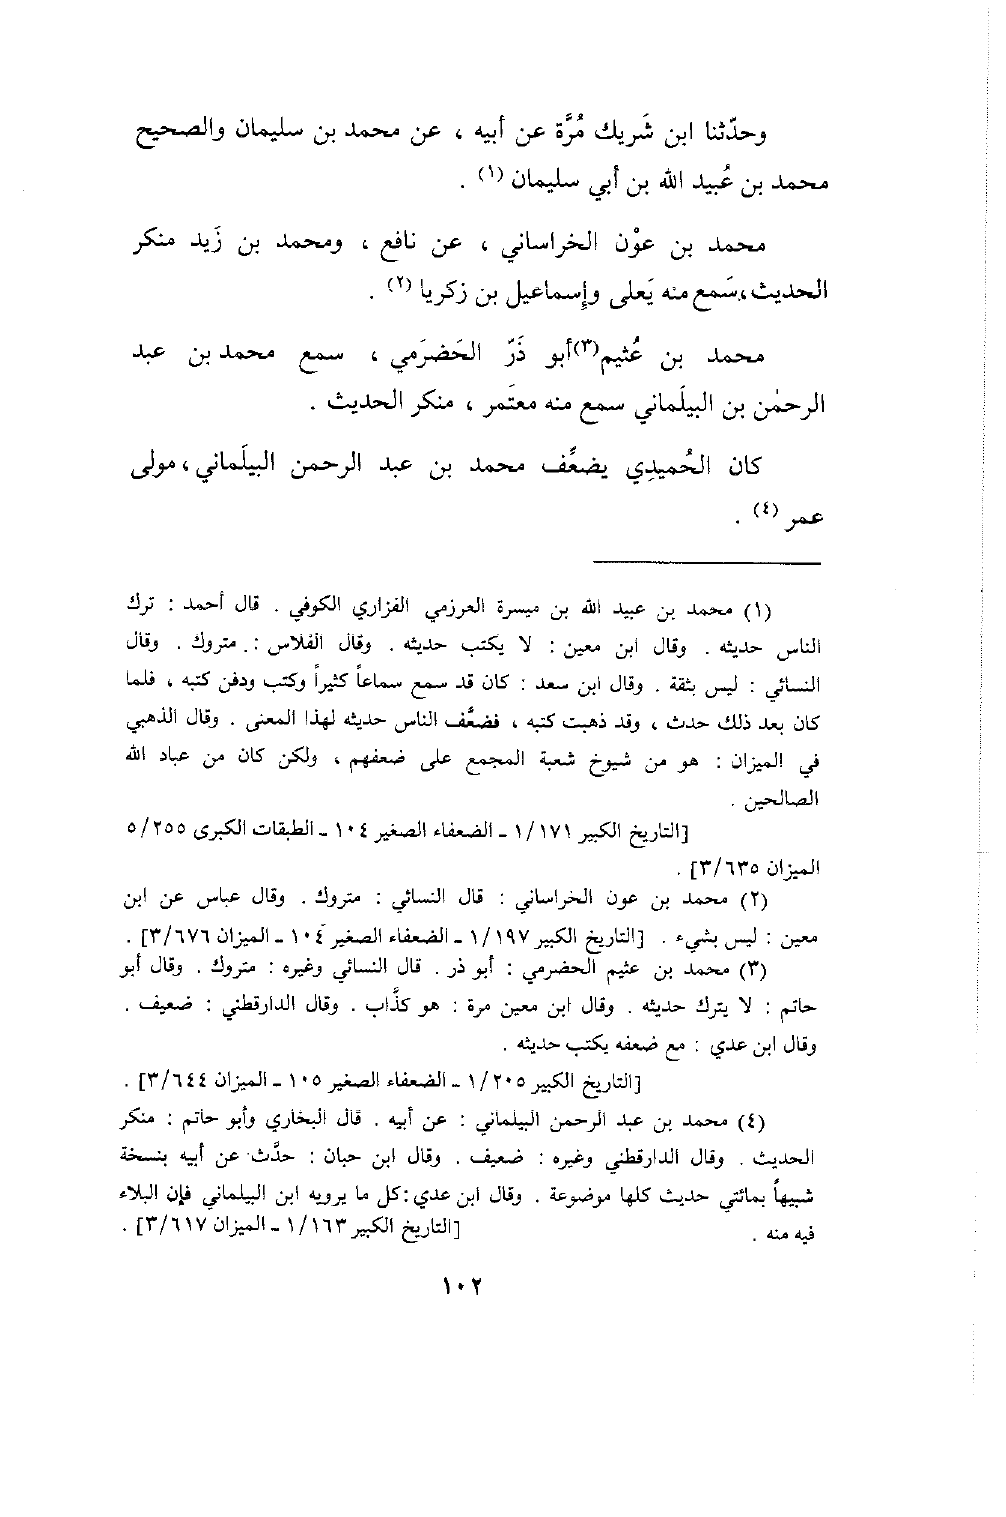 وحدّثنا ابن شَريك مُرَّة عن أبيه ، عن محمد بن سليمان والصحيح
محمد بن عُبيد الله بن أبي سليمان (١) .
محمد بن عوْن الخراساني ، عن نافع ، ومحمد بن زَيد منكر
الحديث، سَمع منه يَعلى وإسماعيل بن زكريا (٢) .
محمد بن عُثيم(٣) أبو ذَرّ الحَضرَمي ، سمع محمد بن عبد
الرحمٰن بن البيلَماني سمع منه معتَمر ، منكر الحديث .
كان الحُميدِي يضعَّف محمد بن عبد الرحمن البيلَماني ، مولى
عمر (٤) .
(١) محمد بن عبيد الله بن ميسرة العرزمي الفزاري الكوفي . قال أحمد : ترك
الناس حديثه . وقال ابن معين : لا يكتب حديثه . وقال الفلاس : متروك . وقال
النسائي : ليس بثقة . وقال ابن سعد : كان قد سمع سماعاً كثيراً وكتب ودفن كتبه ، فلما
كان بعد ذلك حدث ، وقد ذهبت كتبه ، فضعَّف الناس حديثه لهذا المعنى . وقال الذهبي
في الميزان : هو من شيوخ شعبة المجمع على ضعفهم ، ولكن كان من عباد الله
الصالحين .
[التاريخ الكبير ١/١٧١ ـ الضعفاء الصغير ١٠٤ ـ الطبقات الكبرى ٥/٢٥٥
الميزان ٣/٦٣٥] .
(٢) محمد بن عون الخراساني : قال النسائي : متروك . وقال عباس عن ابن
معين : ليس بشيء . [التاريخ الكبير ١/١٩٧ ـ الضعفاء الصغير ١٠٤ ـ الميزان ٣/٦٧٦] .
(٣) محمد بن عثيم الحضرمي : أبو ذر . قال النسائي وغيره : متروك . وقال أبو
حاتم : لا يترك حديثه . وقال ابن معين مرة : هو كذَّاب . وقال الدارقطني : ضعيف .
وقال ابن عدي : مع ضعفه يكتب حديثه .
[التاريخ الكبير ١/٢٠٥ ـ الضعفاء الصغير ١٠٥ ـ الميزان ٣/٦٤٤] .
(٤) محمد بن عبد الرحمن البيلماني : عن أبيه . قال البخاري وأبو حاتم : منكر
الحديث . وقال الدارقطني وغيره : ضعيف . وقال ابن حبان : حدَّث عن أبيه بنسخة
شبيهاً بمائتي حديث كلها موضوعة . وقال ابن عدي : كل ما يرويه ابن البيلماني فإن البلاء
فيه منه . [التاريخ الكبير ١/١٦٣ ـ الميزان ٣/٦١٧] .
١٠٢